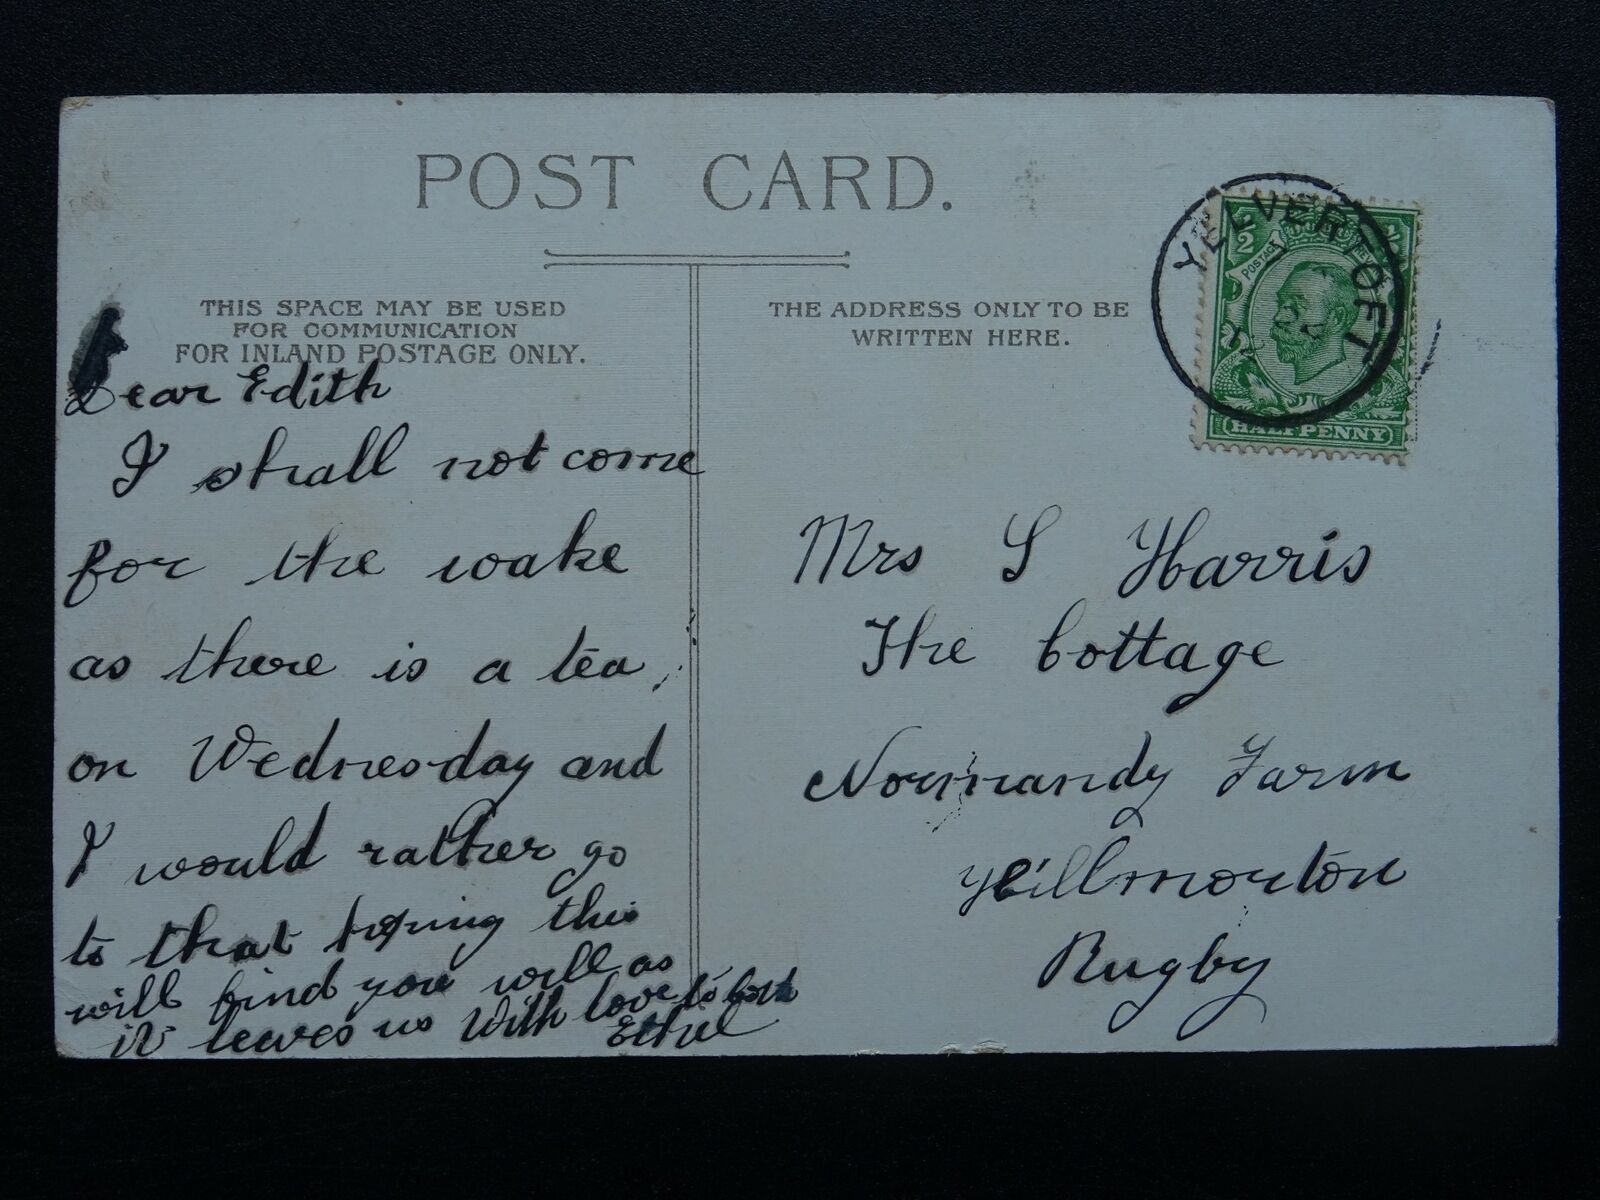 POST CARD.
THIS SPACE MAY BE USED
FOR COMMUNICATION
FOR INLAND POSTAGE ONLY.
Dear Edith
I shall not come
for the wake
as there is a tea
on Wednesday and
I would rather go
to that hoping this
will find you will as
it leaves us With love to both
Ethel
THE ADDRESS ONLY TO BE
WRITTEN HERE.
YELVERTOFT
12
1/2
POSTAGE
HALFPENNY
Mrs S Harris
The Cottage
Normandy Farm
Hillmorton
Rugby